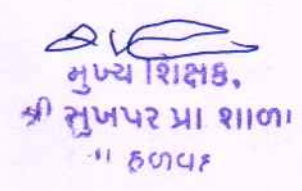 મુખ્ય શિક્ષક,
શ્રી સુખપર પ્રા શાળા
હળવદ